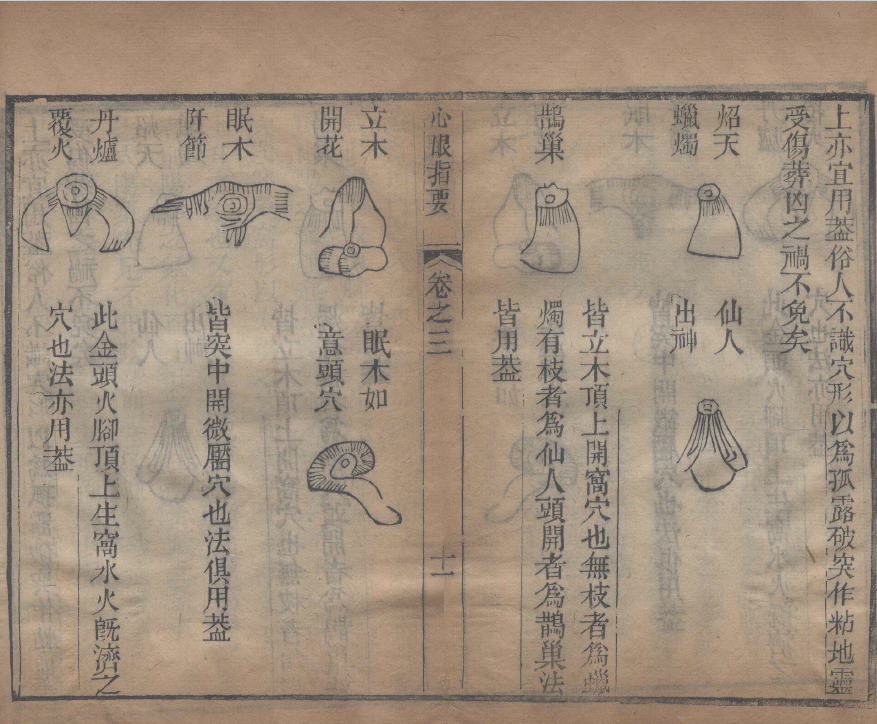 上亦宜用葢俗人不識穴形以爲孤露破突作粘地靈
受傷葬凶之禍不免矣
焰天
蠟燭
仙人
出神
皆立木頂上開窩穴也無枝者爲蠟
燭有枝者爲仙人頭開者爲鵲巢法
皆用葢
鵲巢
心眼指要
卷之三
十一
立木
開花
眠木如
意頭穴
眠木
節
皆突中開微靨穴也法俱用葢
丹爐
覆火
此金頭火腳頂上生窩水火旣濟之
穴也法亦用葢